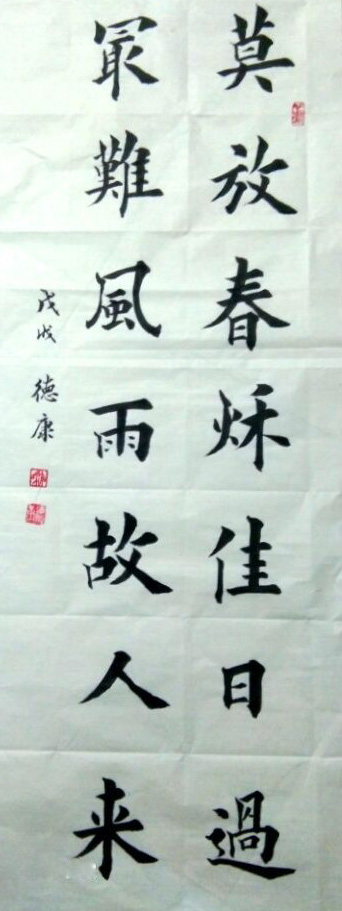 莫放春秌佳日過
冣難風雨故人来
戊戌 德康